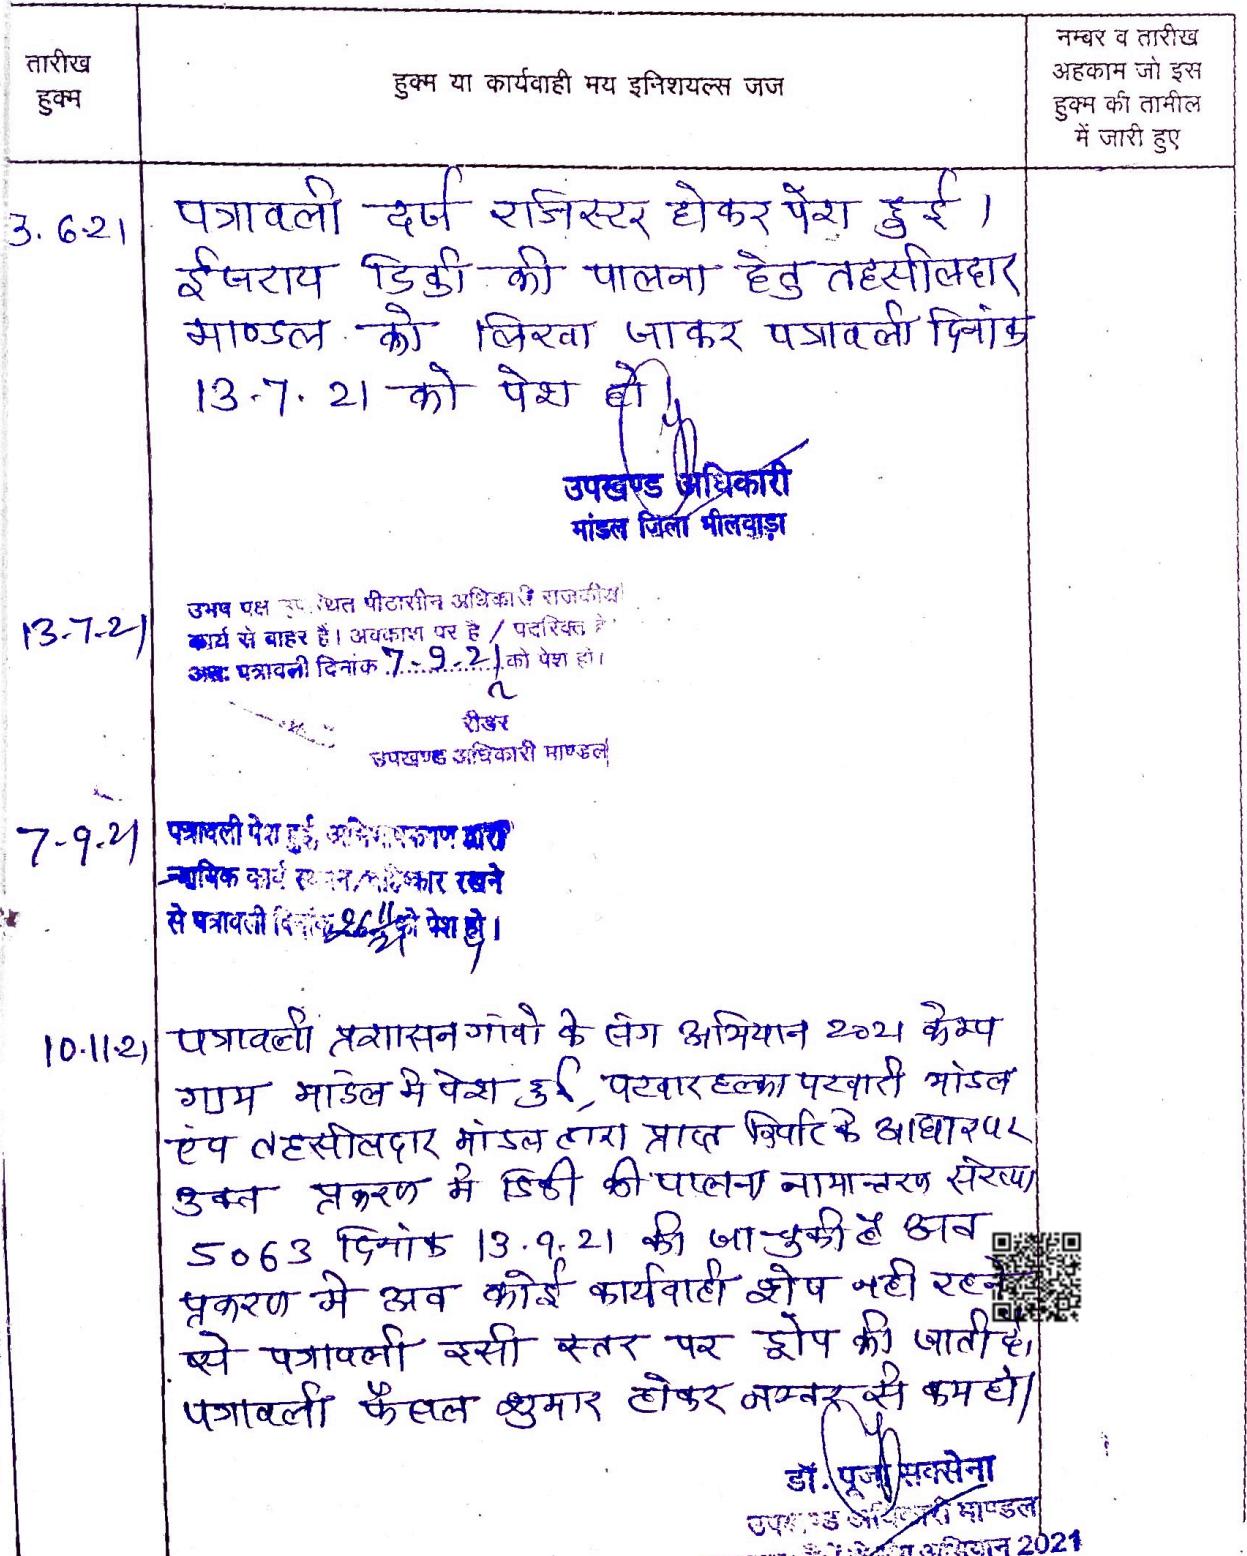 तारीख
हुक्म
हुक्म या कार्यवाही मय इनिशयल्स जज
नम्बर व तारीख
अहकाम जो इस
हुक्म की तामील
में जारी हुए
3.6.21
पत्रावली दर्ज राजिस्टर होकर पेश हुई।
ईजराय डिक्री की पालना हेतु तहसीलदार
माण्डल को लिखा जाकर पत्रावली दिनांक
13.7.21 को पेश हो।
उपखण्ड अधिकारी
मांडल जिला भीलवाड़ा
13-7-21
उभय पक्ष उपस्थित पीठासीन अधिकारी राजकीय
कार्य से बाहर है। अवकाश पर है / पदरिक्त है
अतः पत्रावली दिनांक 7-9-21 को पेश हो।
रीडर
उपखण्ड अधिकारी माण्डल
7-9-21
पत्रावली पेश हुई, अभिभाषकगण द्वारा
न्यायिक कार्य स्थगन/बहिष्कार रखने
से पत्रावली दिनांक 26/11/21 को पेश हो।
10.11.21
पत्रावली प्रशासन गांवो के संग अभियान 2021 केम्प
ग्राम मांडल मे पेश हुई, पटवार हल्का पटवारी मांडल
एंव तहसीलदार मांडल द्वारा प्राप्त रिर्पोट के आधार पर
उक्त प्रकरण मे डिक्री की पालना नामान्तरण संख्या
5063 दिनांक 13.9.21 की जा चुकी है अब
प्रकरण मे अब कोई कार्यवाही शेष नही रहने
से पत्रावली इसी स्तर पर ड्रोप की जाती है।
पत्रावली फैसल शुमार होकर नम्बर से कम हो।
डॉ. पूजा सक्सेना
उपखण्ड अधिकारी माण्डल
अभियान 2021